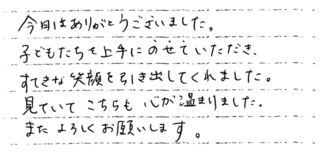 今日はありがとうございました。
子どもたちを上手にのせていただき、
すてきな笑顔を引き出してくれました。
見ていてこちらも心が温まりました。
またよろしくお願いします。